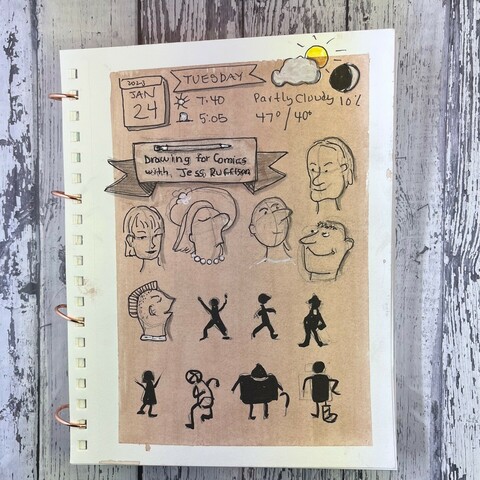 2023
JAN
24
TUESDAY
7:40
5:05
Partly Cloudy 10%
47°/40°
Drawing for Comics
with, Jess Ruffison